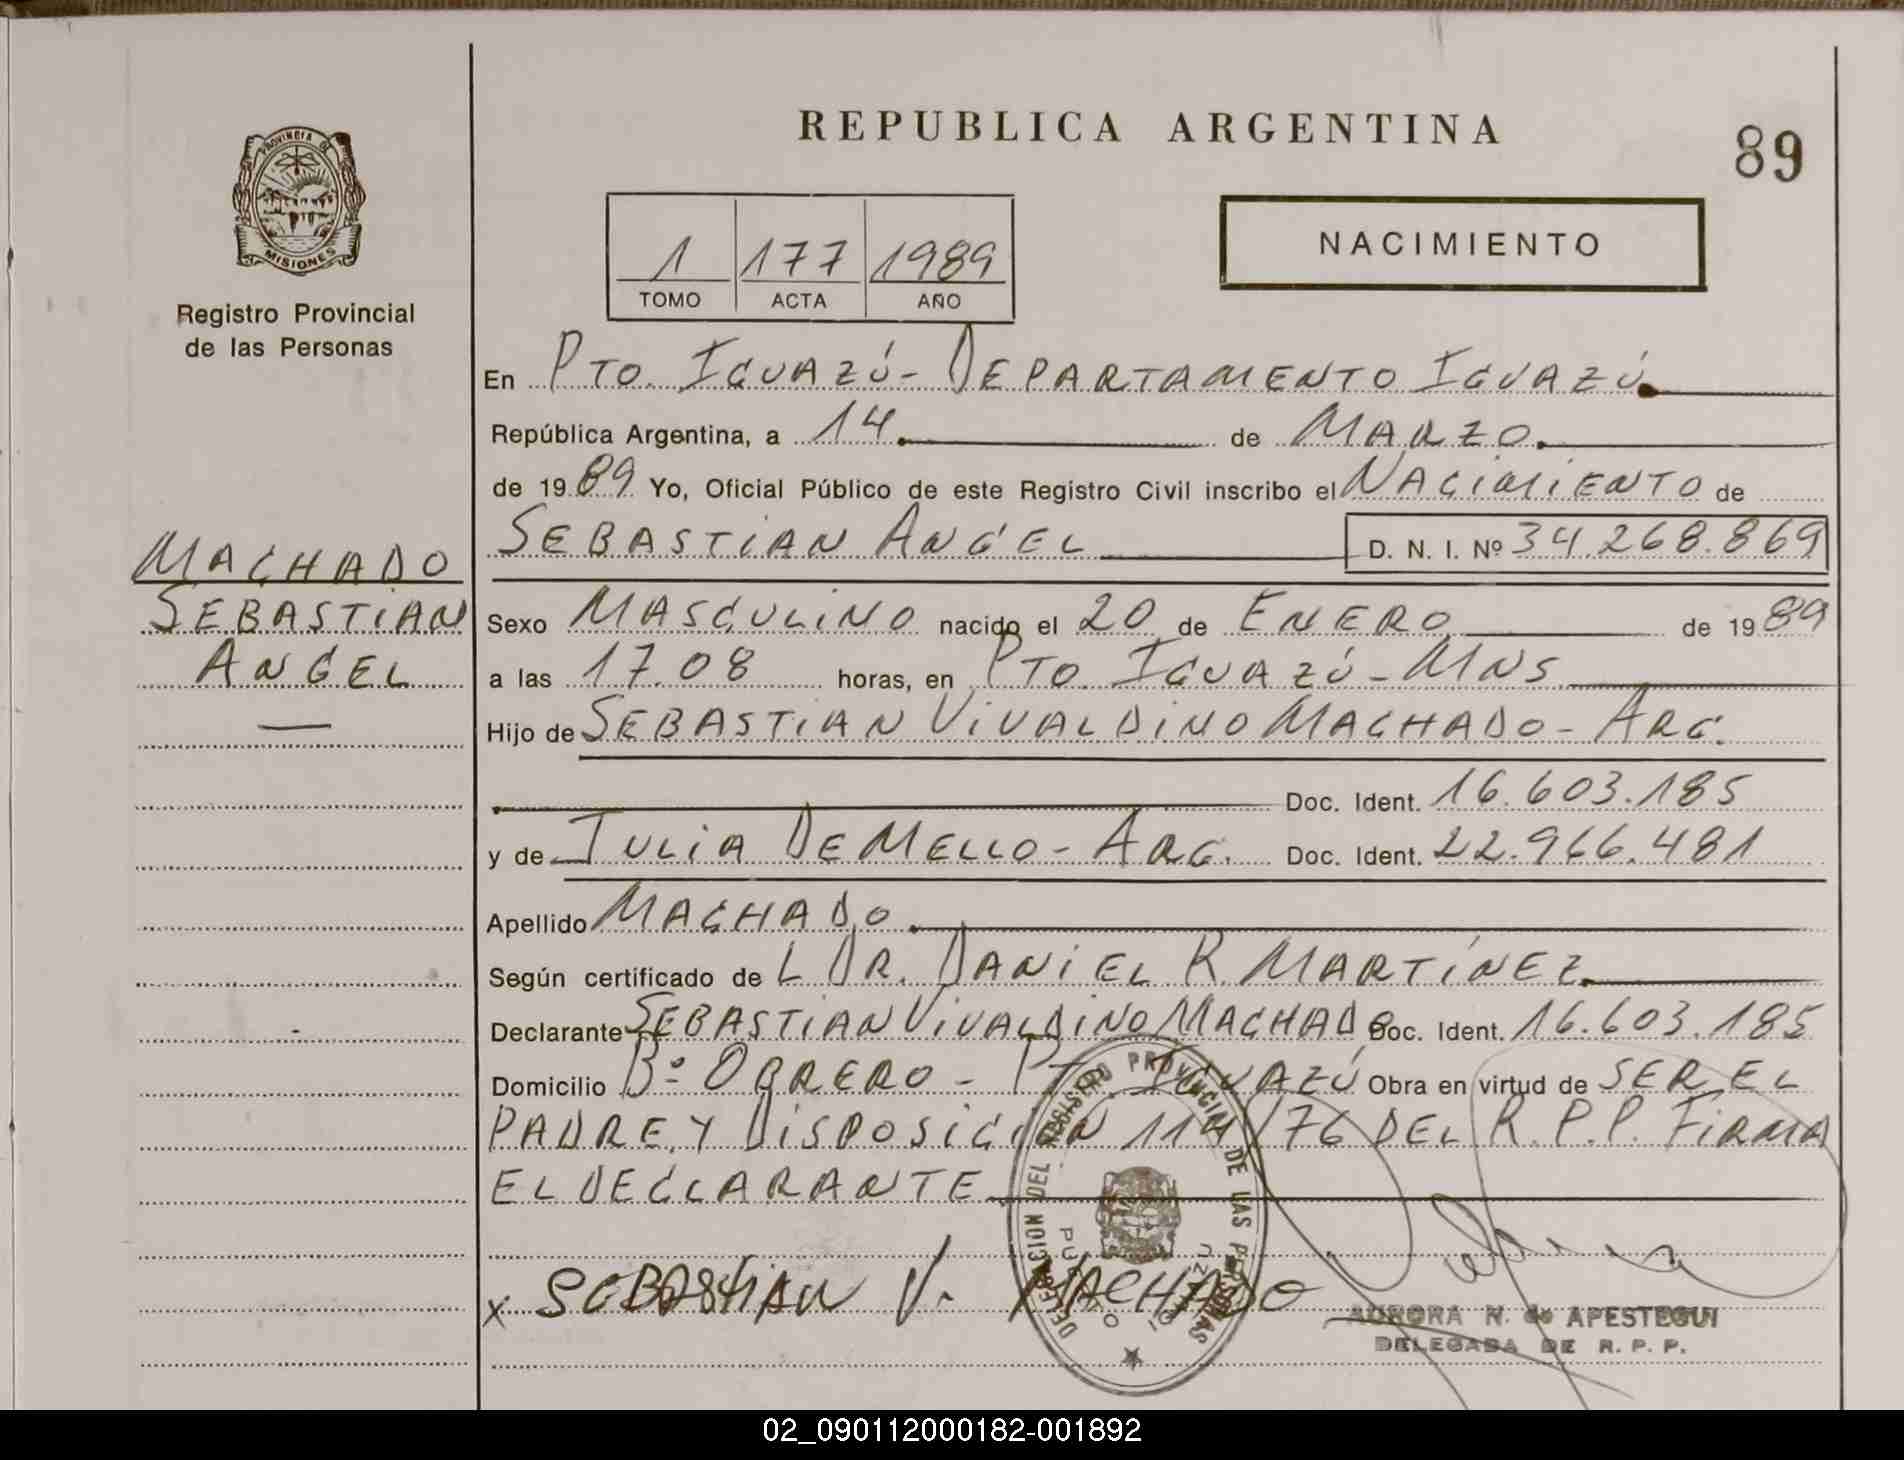 REPUBLICA ARGENTINA
89
PROVINCIA DE
MISIONES
Registro Provincial
de las Personas
1 177 1989
TOMO ACTA AÑO
NACIMIENTO
En PTO. IGUAZÚ - DEPARTAMENTO IGUAZÚ
República Argentina, a 14 de MARZO
de 1989 Yo, Oficial Público de este Registro Civil inscribo el NACIMIENTO de
SEBASTIAN ANGEL D. N. I. Nº 34.268.869
MACHADO
SEBASTIAN
ANGEL
Sexo MASCULINO nacido el 20 de ENERO de 1989
a las 17.08 horas, en PTO. IGUAZÚ - MNS
Hijo de SEBASTIAN VIVALDINO MACHADO - ARG.
Doc. Ident. 16.603.185
y de JULIA DE MELLO - ARG. Doc. Ident. 22.966.481
Apellido MACHADO
Según certificado de L DR. DANIEL R. MARTÍNEZ
Declarante SEBASTIAN VIVALDINO MACHADO Doc. Ident. 16.603.185
Domicilio Bº OBRERO - PTO. IGUAZÚ Obra en virtud de SER EL
PADRE Y DISPOSICION 114/76 DEL R.P.P. FIRMA
EL DECLARANTE
X SEBASTIAN V. MACHADO
DELEGACION DEL REGISTRO PROVINCIAL DE LAS PERSONAS
PUERTO IGUAZU
AURORA N. de APESTEGUI
DELEGADA DE R. P. P.
02_090112000182-001892